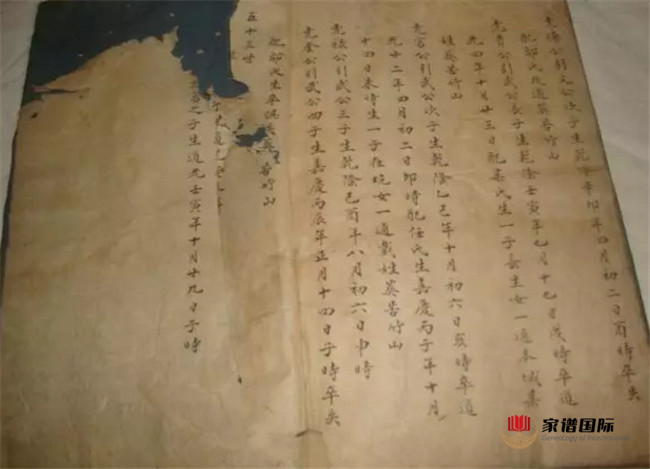 公引文公次子生乾隆辛卯年四月初二日酉時卒失
配邱氏改適葬苦竹山
光貴公引武公長子生乾隆壬寅年七月十七日戌時卒道
光四年十月廿三日配某氏生一子長生女一適本城
姓葬苦竹山
光宦公引武公次子生乾隆乙巳年十月初六日亥時卒道
光十二年四月初二日卯時配任氏生嘉慶丙子年十月
十四日未時生一子在女一適戴姓葬苦竹山
光祿公引武公三子生乾隆己酉年八月初六日申時
光奎公引武公四子生嘉慶丙辰年正月十四日子時卒失
配邱氏生卒俱失葬苦竹山
五十三世
道光
之子生道光壬寅年十月廿九日子時
家谱国际
Genealogy of International